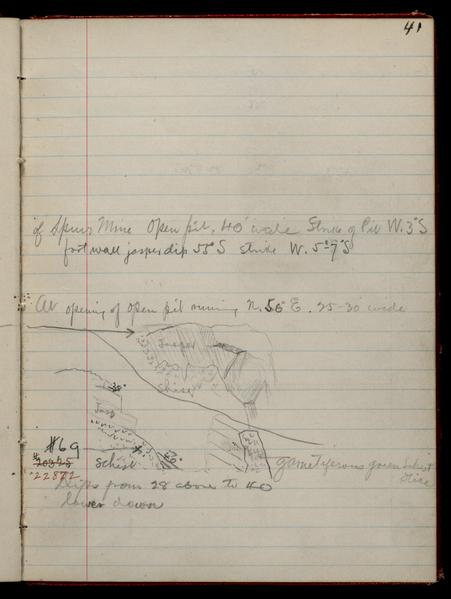 41
of Spurr Mine Open pit. 40' wide Strike of Pit W. 3° S
foot wall jasper dip 55° S strike W. 5°-7° S
At opening of open pit running N. 56 E. 25-30 wide
Jasper
Schist
30°
Jasp
#69
40°
#20345 schist
22872
garnetiferous green schist
Dips from 28 above to 40
lower down